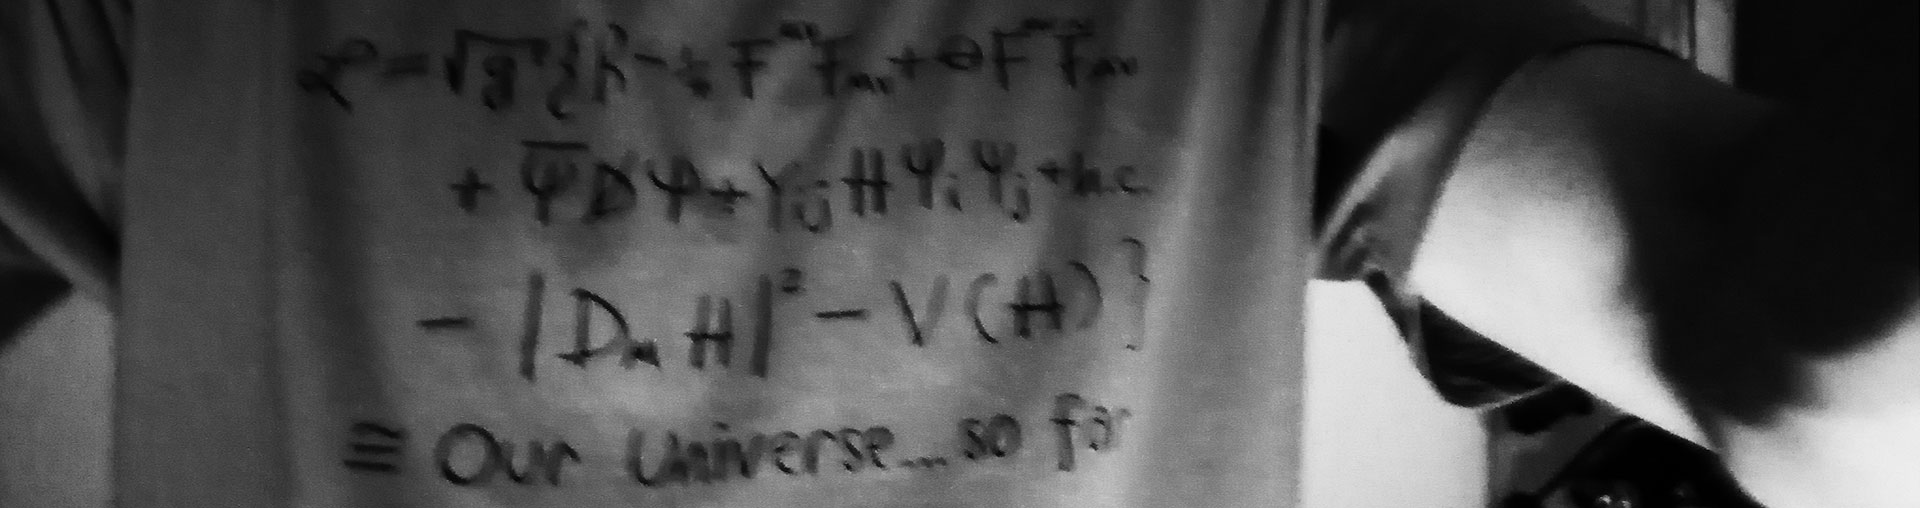 ℒ = √g { R - ½ F^{μν} F_{μν} + θ F^{μν} F̃_{μν}
+ Ψ̄ D̸ Ψ + Y_{ij} H Ψ_i Ψ_j + h.c.
- |D_μ H|² - V(H) }
≅ Our Universe... so far